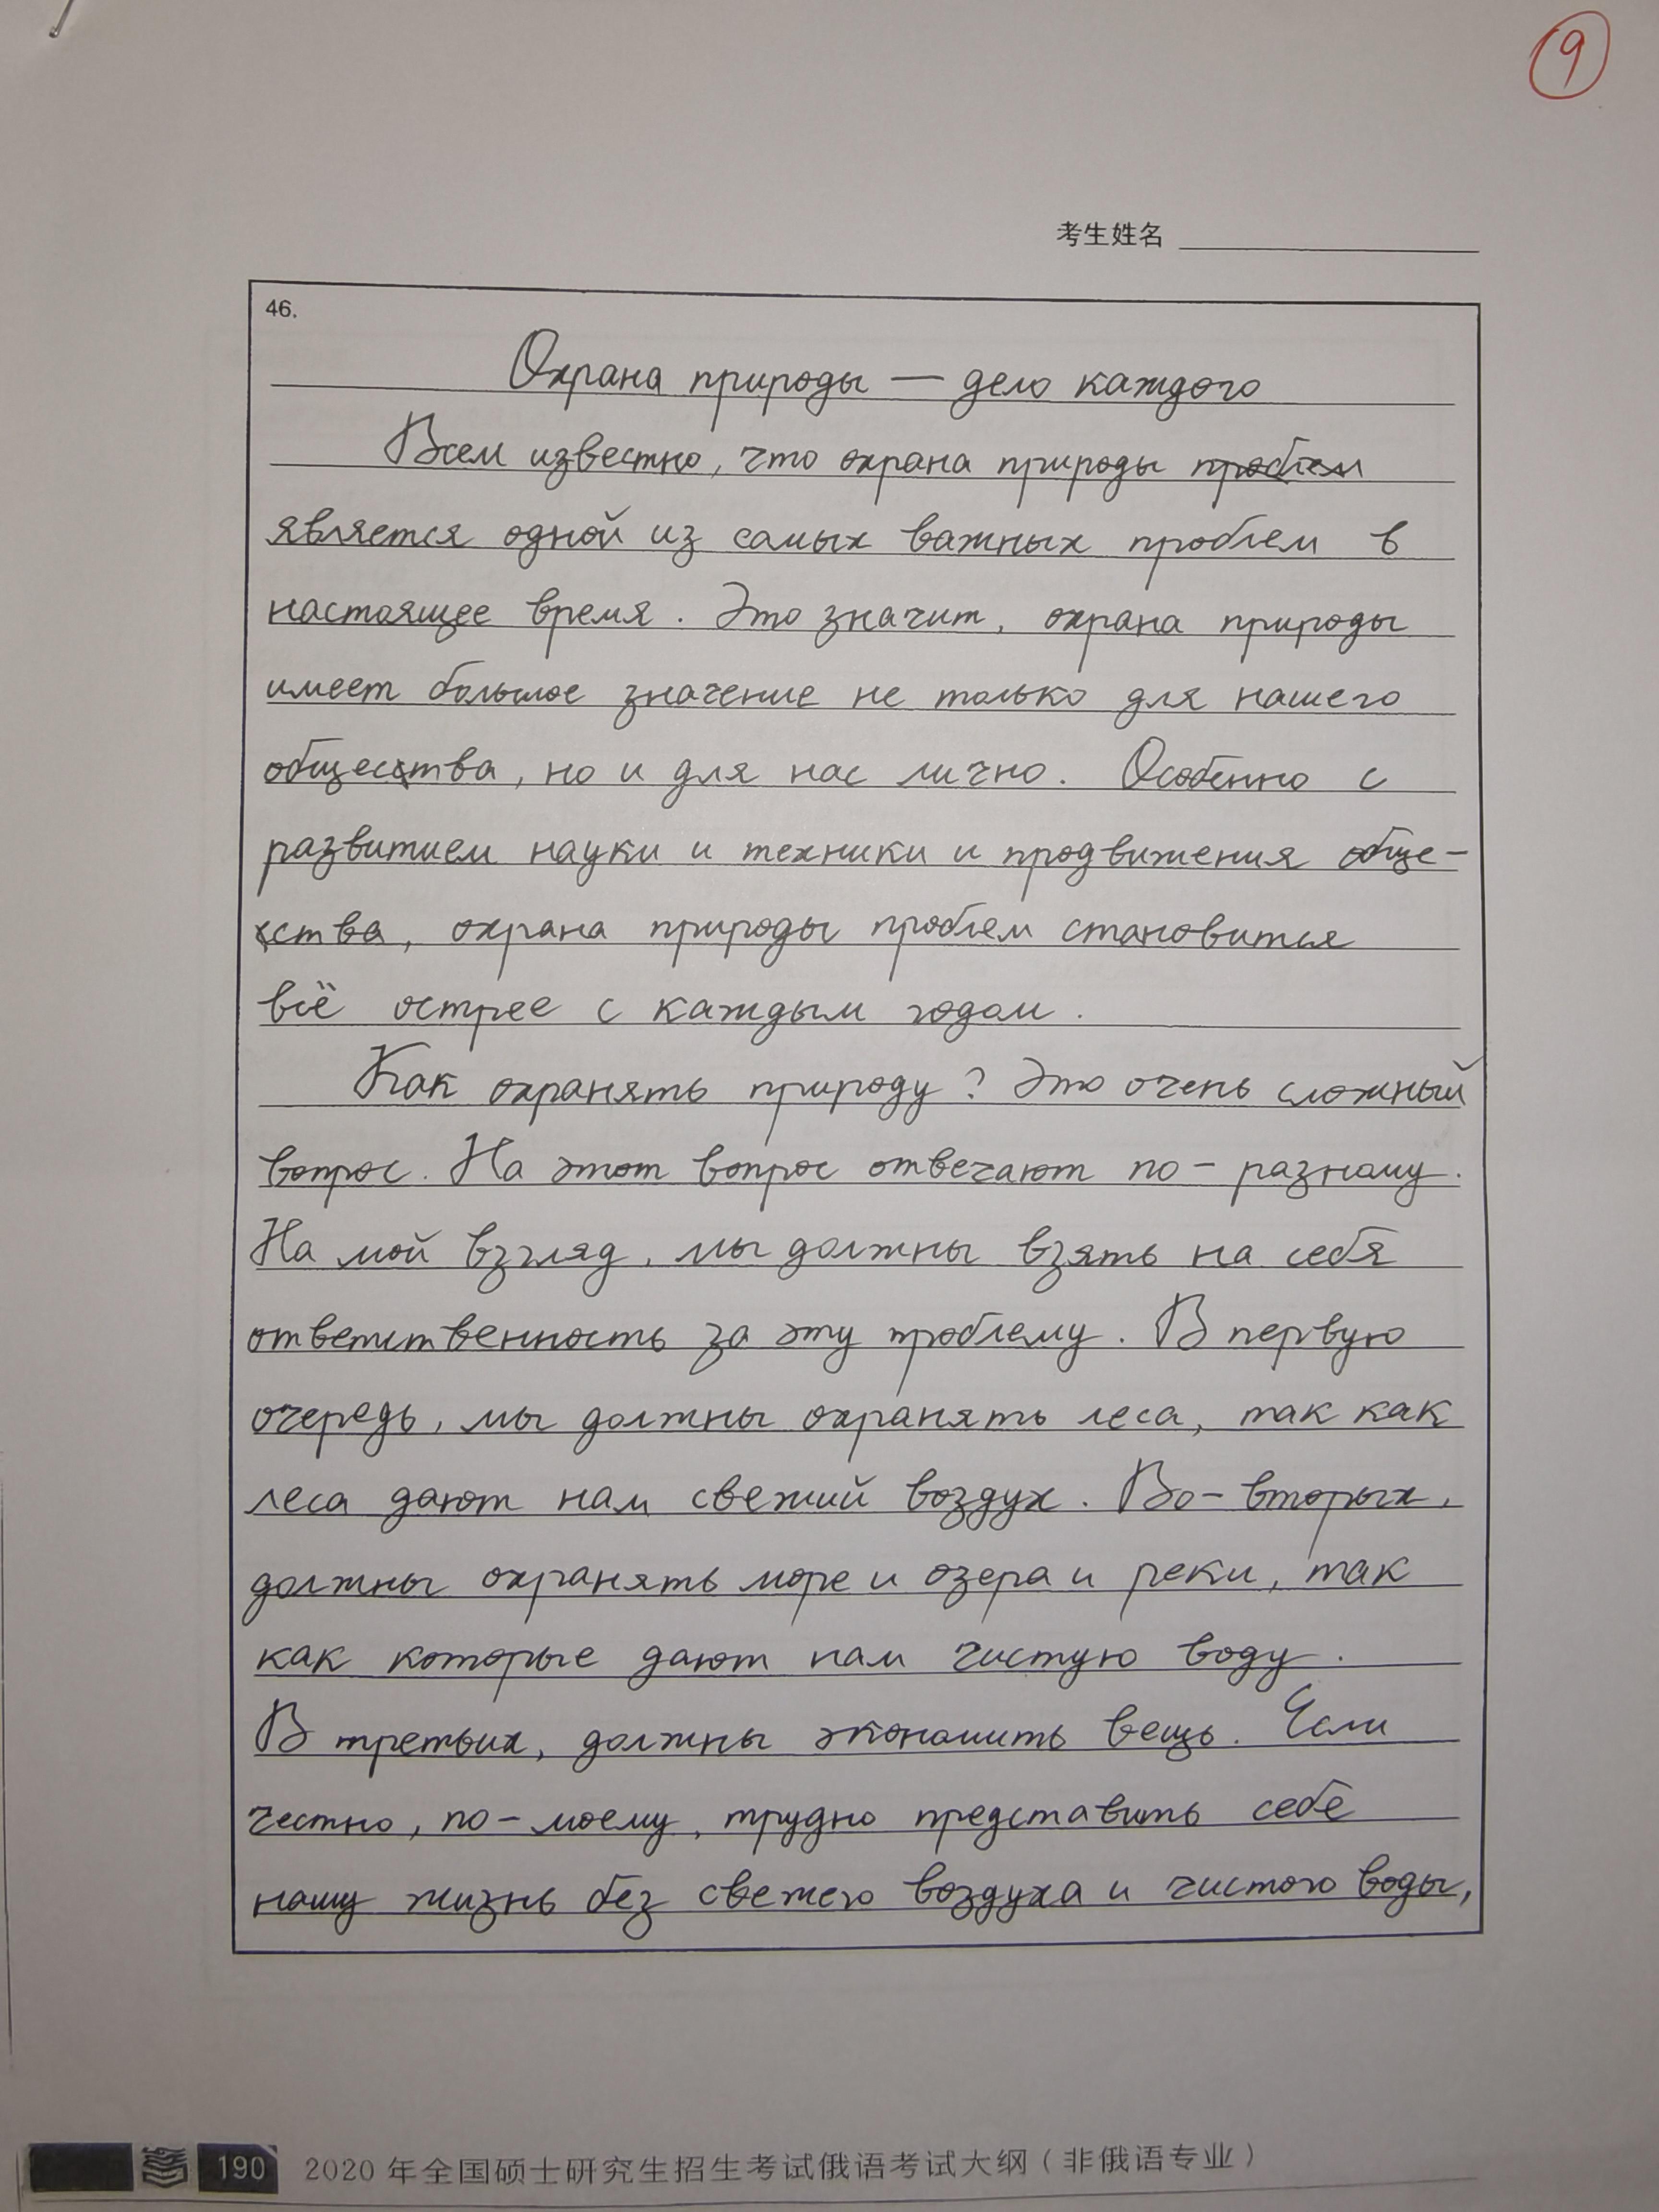 9
考生姓名
46.
Охрана природы — дело каждого
Всем известно, что охрана природы проблем
является одной из самых важных проблем в
настоящее время. Это значит, охрана природы
имеет большое значение не только для нашего
общества, но и для нас лично. Особенно с
развитием науки и техники и продвижения обще-
ства, охрана природы проблем становится
всё острее с каждым годом.
Как охранять природу? Это очень сложный
вопрос. На этот вопрос отвечают по-разному.
На мой взгляд, мы должны взять на себя
ответственность за эту проблему. В первую
очередь, мы должны охранять леса, так как
леса дают нам свежий воздух. Во-вторых,
должны охранять море и озера и реки, так
как которые дают нам чистую воду.
В третьих, должны экономить вещь. Если
честно, по-моему, трудно представить себе
нашу жизнь без свежего воздуха и чистого воды,
190 2020年全国硕士研究生招生考试俄语考试大纲(非俄语专业)